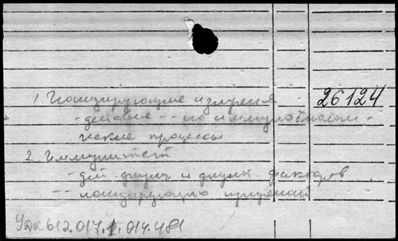 1. Ионизирующие излучения 26124
- действие -- на иммунобиологи-
ческие процессы
2. Иммунитет
- действие и других факторов
-- ионизирующие излучения
УДК 612.017.1.014.481